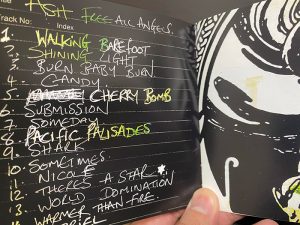 ASH FREE ALL ANGELS.
Track No: Index
1. WALKING BAREFOOT
2. SHINING LIGHT
3. BURN BABY BURN
4. CANDY
5. CHERRY BOMB
6. SUBMISSION
7. SOMEDAY
8. PACIFIC PALISADES
9. SHARK
10. SOMETIMES
11. NICOLE
12. THERE'S A STAR
13. WORLD DOMINATION
14. WARMER THAN FIRE.